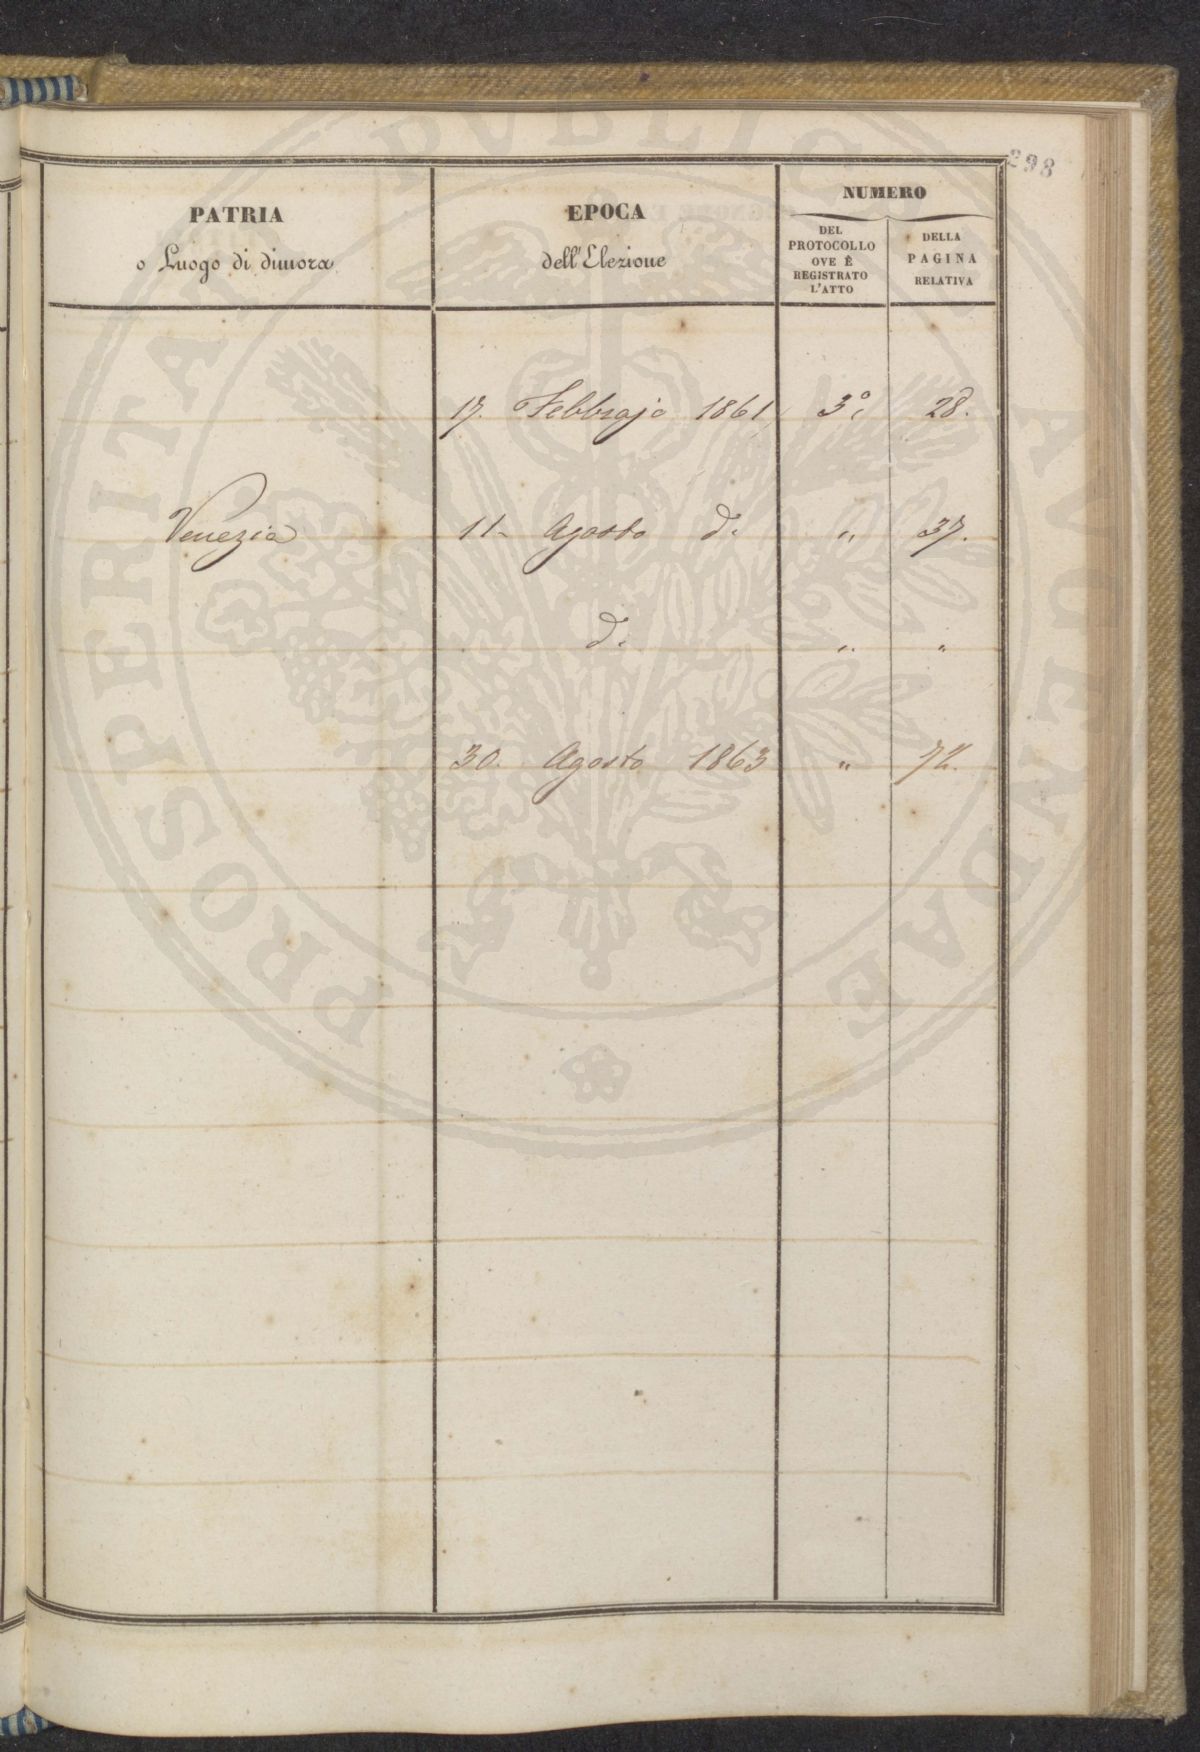 298
PATRIA
o Luogo di dimora
EPOCA
dell'Elezione
NUMERO
DEL
PROTOCOLLO
OVE È
REGISTRATO
L'ATTO
DELLA
PAGINA
RELATIVA
17. Febbrajo 1861 3º. 28.
Venezia 11. Agosto d.º " 37.
d.º " "
30. Agosto 1863 " 72.
PROSPERITATI PVBLICAE AVGENDAE